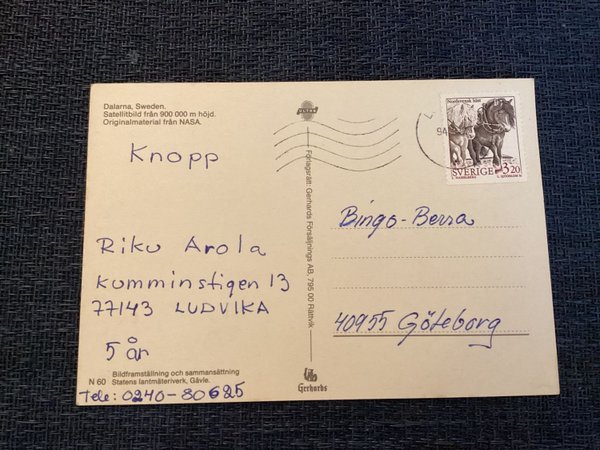 Dalarna, Sweden.
Satellitbild från 900 000 m höjd.
Originalmaterial från NASA.
Knopp
Riku Arola
Kumminstigen 13
77143 LUDVIKA
5 år
Bildframställning och sammansättning
N 60 Statens lantmäteriverk, Gävle.
Tele: 0240-80625
Förlagsrätt: Gerhards Försäljnings AB, 795 00 Rättvik
Gerhards
Nordsvensk häst
SVERIGE 3,20
Bingo-Berra
40955 Göteborg